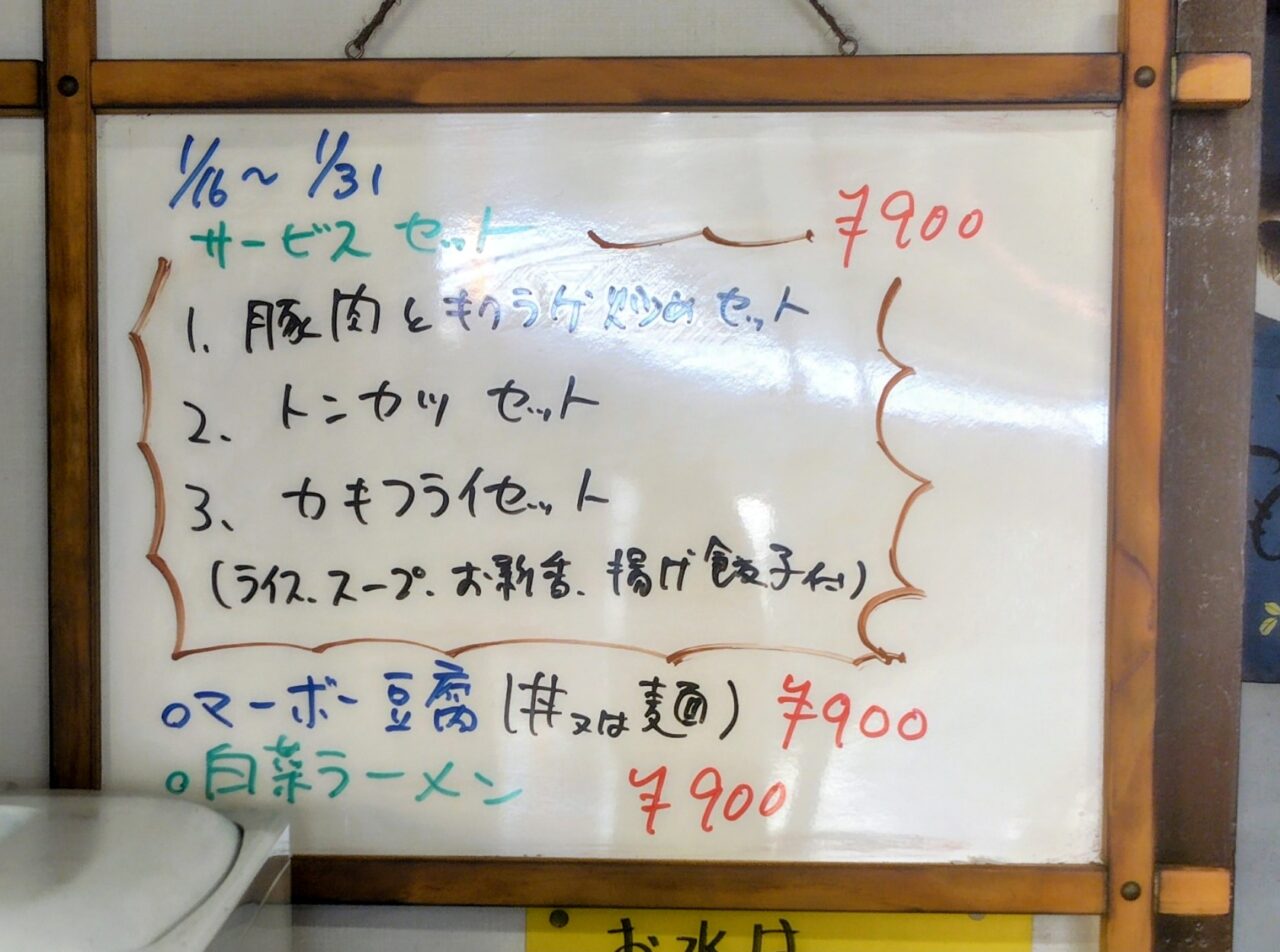 1/16～1/31
サービスセット ¥900
1. 豚肉とキクラゲ炒めセット
2、 トンカツ セット
3、 カキフライセット
(ライス、スープ、お新香、揚げ餃子付)
○マーボー豆腐(丼又は麺) ¥900
○白菜ラーメン ¥900
お水は